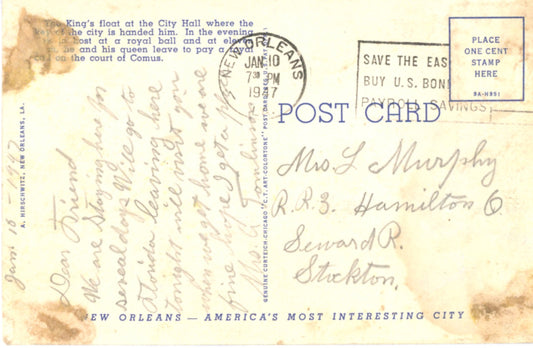 The King's float at the City Hall where the
key of the city is handed him. In the evening
he is host at a royal ball and at eleven
he and his queen leave to pay a royal
call on the court of Comus.
A. HIRSCHWITZ, NEW ORLEANS, LA.
Jan 10-1947
Dear Friend
We are staying here for
several days Will go to
Florida leaving here
tonight will visit you
when we get home we are
fine hope I get a
Mrs Tomlinson
GENUINE CURTEICH-CHICAGO "C.T. ART-COLORTONE" POST CARD
NEW ORLEANS
JAN 10
7 30 PM
1947
SAVE THE EAS
BUY U.S. BON
PAYROLL SAVINGS
PLACE
ONE CENT
STAMP
HERE
POST CARD
Mrs L Murphy
R.R.3. Hamilton O
Seward R.
Stockton.
NEW ORLEANS — AMERICA'S MOST INTERESTING CITY